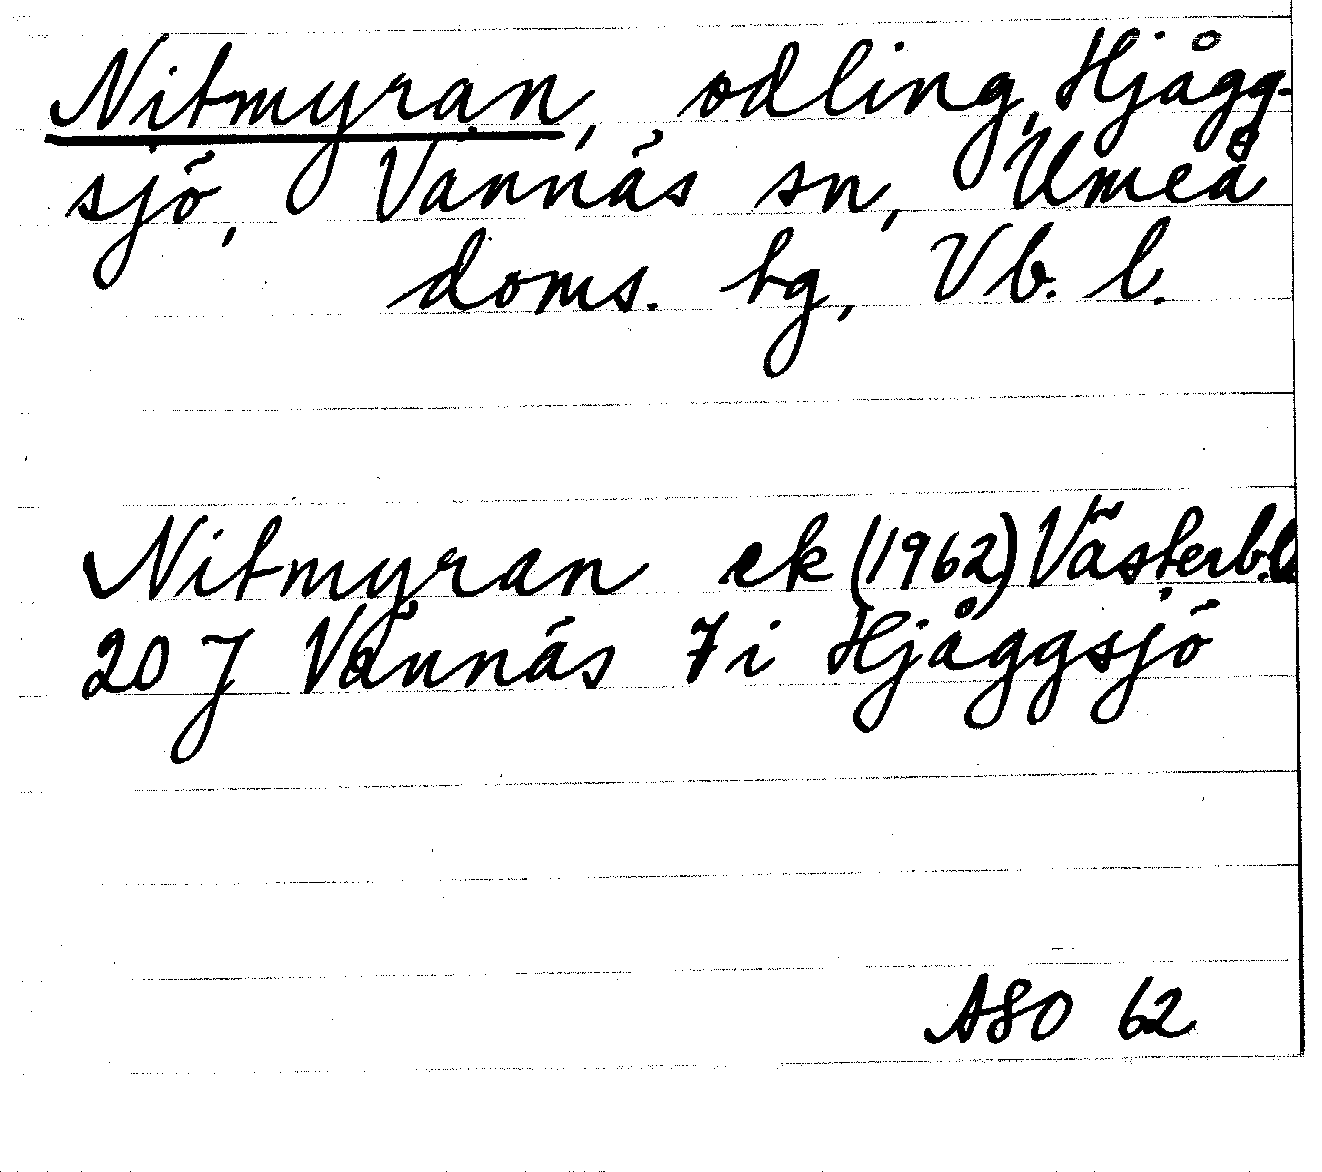 Nitmyran, odling, Hjågg-
sjö, Vännäs sn, Umeå
doms. hg, Vb. l.
Nitmyran ek (1962) Västerb.l.
20 J Vännäs 7 i Hjåggsjö
ASO 62